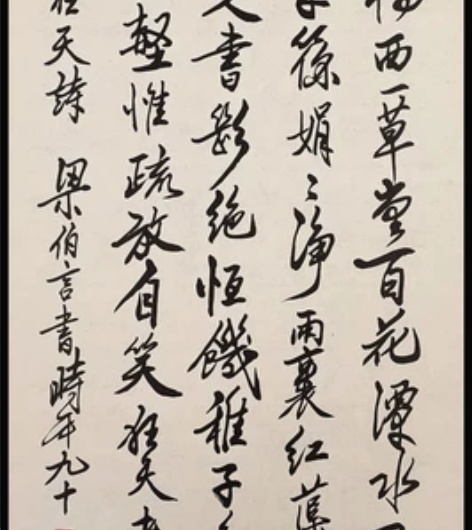 橋西一草堂百花潭水
篠娟〻淨雨裛紅蕖
人書斷絕恒饑稚子
壑惟疏放自笑狂夫老
狂夫詩 梁伯言書時年九十